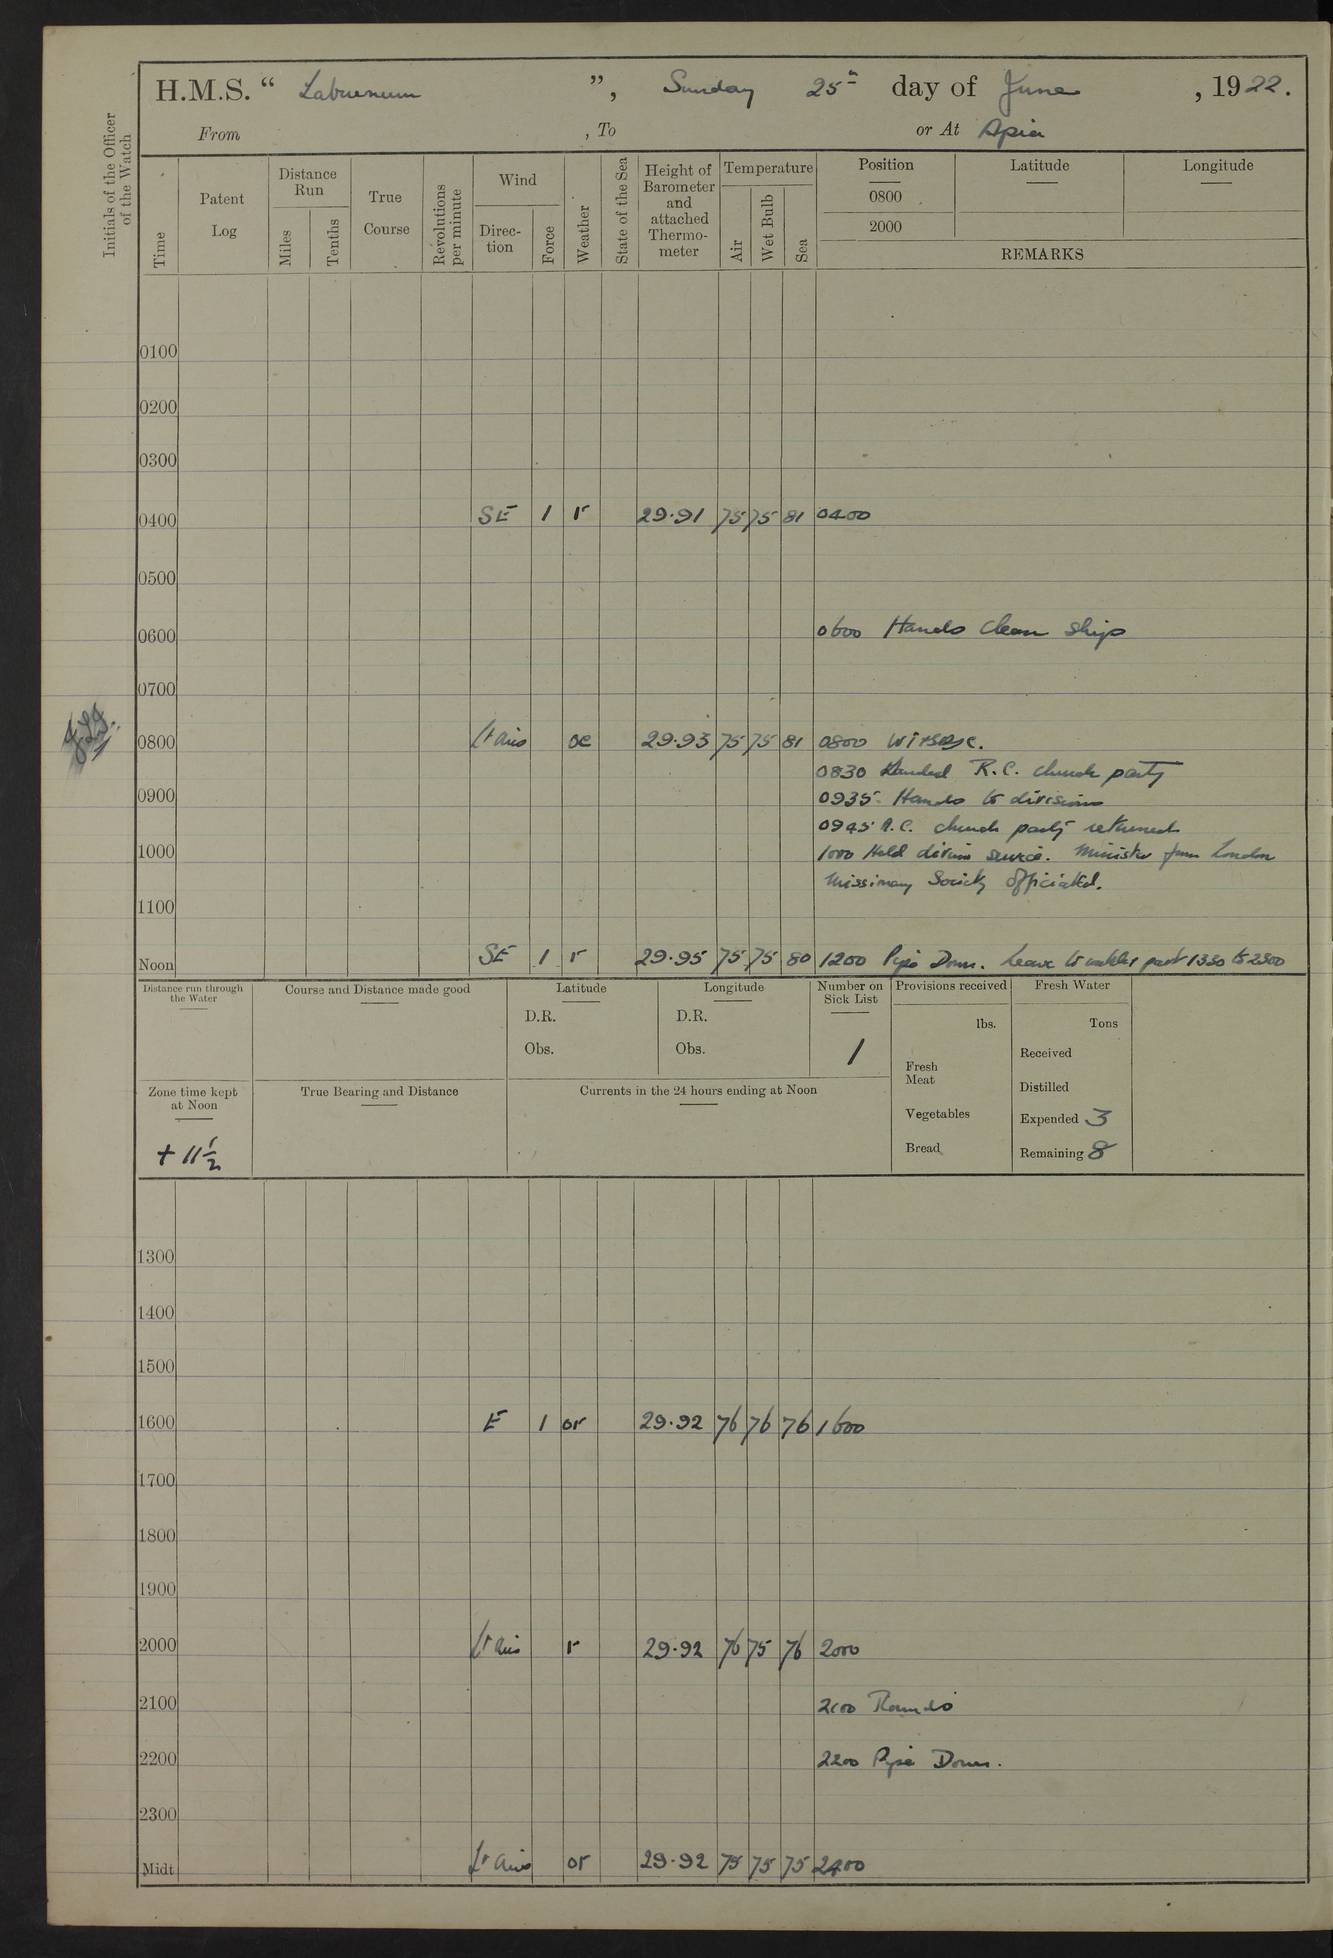 H.M.S. “ Laburnum ”, Sunday 25th day of June , 1922.
From , To or At Apia
Initials of the Officer of the Watch
Time
Patent Log
Distance Run
Miles
Tenths
True Course
Revolutions per minute
Wind
Direc-tion
Force
Weather
State of the Sea
Height of Barometer and attached Thermo-meter
Temperature
Air
Wet Bulb
Sea
Position Latitude Longitude
0800
2000
REMARKS
0100
0200
0300
0400 SE 1 r 29.91 75 75 81 0400
0500
0600 0600 Hands clean ship
0700
0800 Lt airs oc 29.93 75 75 81 0800
0830 Landed R.C. church party
0900 0935 Hands to divisions
0945 R.C. church party returned
1000 1000 Held divine service. Minister from London
Missionary Society officiated.
1100
Noon SE 1 r 29.95 75 75 80 1200 Pipe Down. Leave to watch & part 1330 to 2300
Distance run through the Water
Course and Distance made good
Latitude
D.R.
Obs.
Longitude
D.R.
Obs.
Number on Sick List
1
Provisions received
lbs.
Fresh Meat
Vegetables
Bread
Fresh Water
Tons
Received
Distilled
Expended 3
Remaining 8
Zone time kept at Noon
+ 11 1/2
True Bearing and Distance
Currents in the 24 hours ending at Noon
1300
1400
1500
1600 E 1 or 29.92 76 76 76 1600
1700
1800
1900
2000 Lt airs r 29.92 76 75 76 2000
2100 2100 Rounds
2200 2200 Pipe Down.
2300
Midt Lt airs or 29.92 75 75 75 2400